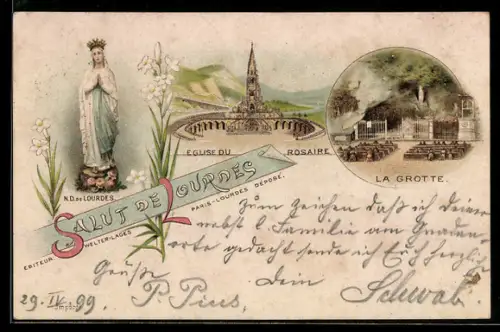 N.D. DE LOURDES
EGLISE DU ROSAIRE
LA GROTTE.
SALUT DE LOURDES
EDITEUR WELTER-LAGES PARIS-LOURDES DEPOSE.
Zum Zeichen daß ich Deiner
nebst l. Familie am Gnaden-
orte gedacht sende ich Euch herzlich
Grüße Dein
P. Pius, Schwab.
29. IV. 99